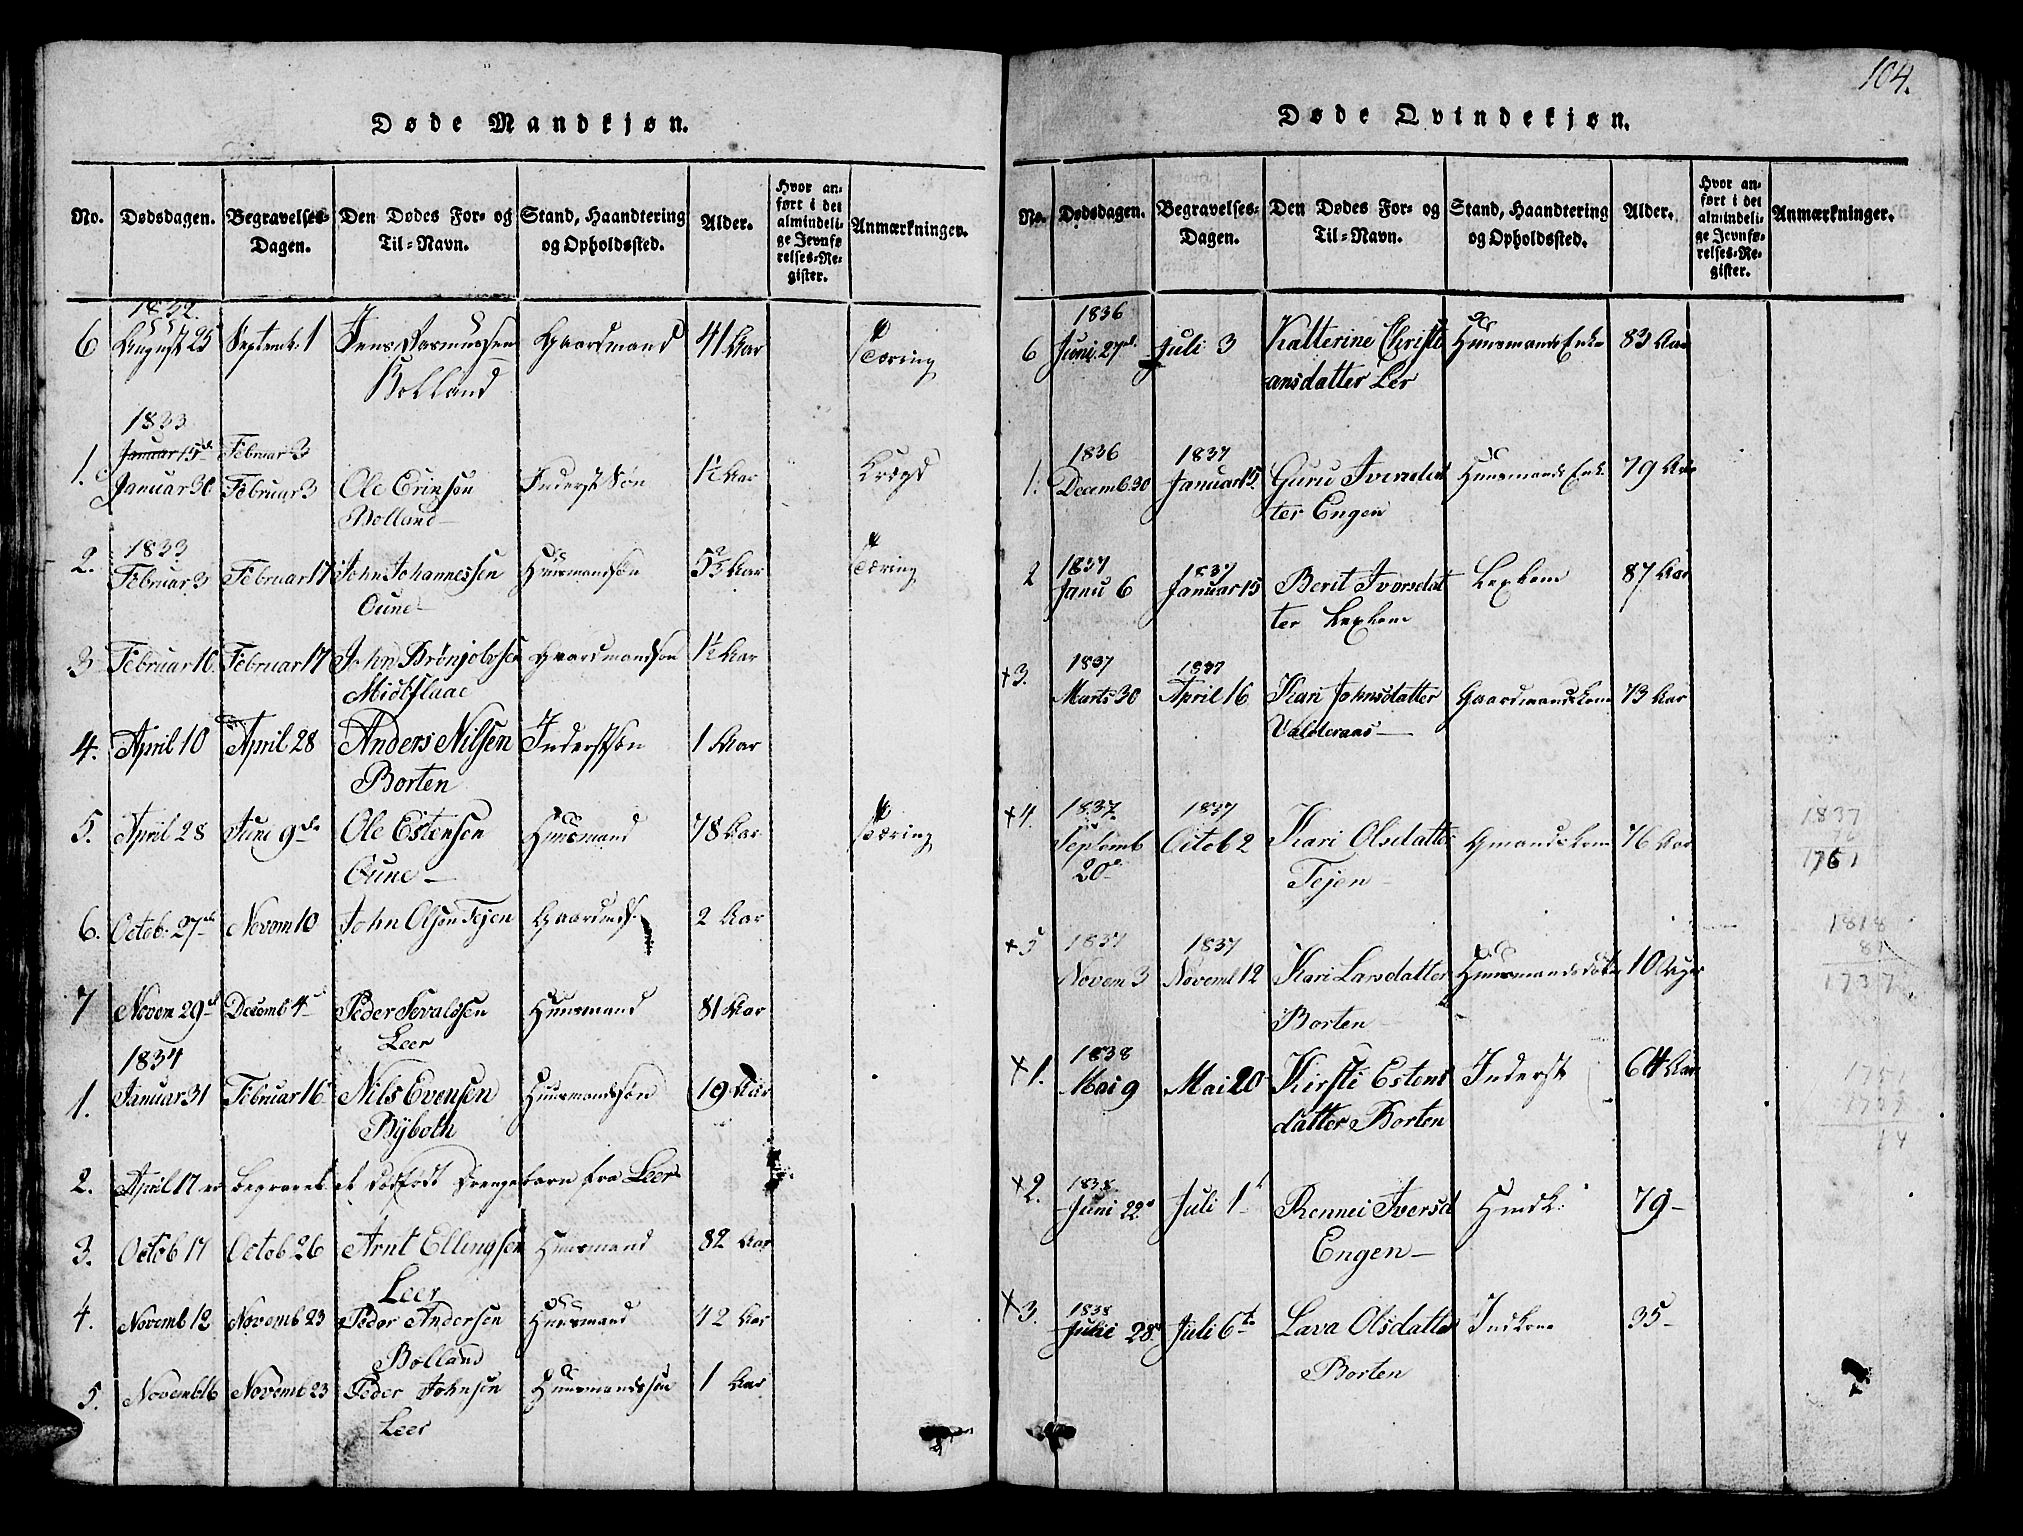 Døde Mandkjøn.
No. Dødsdagen. Begravelses-Dagen. Den Dødes For- og Til-Navn. Stand, Haandtering og Opholdssted. Alder. Hvor anført i det almindelige Jevnførelses-Register. Anmærkninger.
1832.
6 August 25 Septemb. 1 Jens Rasmussen Gaardmand 41 Aar Tæring
Bolland
1833
Januar 15de Februar 3
1. Januar 30 Februar 3 Ole Erinsøn Inderst Søn 1½ Aar
Bolland
1833
2. Februar 3 Februar 17 John Johannessen Huusmandsøn Aar Tæring
Oune
3 Februar 16 Februar 17 John Brønjolvsen Gaardmandsøn 1½ Aar
Midtflaae
4. April 10 April 28 Anders Nilsen Inderstsøn 1 Aar
Borten
5. April 28 Juni 9de Ole Estensen Huusmand 78 Aar Tæring
Oune
6. Octob. 27de Novem 10 John Olsen Fejen 2 Aar
7 Novem 29de Decemb 4de Peder Sevaldsen Huusmand 81 Aar
Leer
1834
1. Januar 31 Februar 16 Nils Evensen Huusmandssøn 19 Aar
Bÿboth
2. April 17 er begravet et dødfødt Drengebarn fra Leer
3. Octob 17 Octob 26 Arnt Ellingsen Huusmand 82 Aar
Leer
4. Novemb 12 Novemb 23 Peder Andersen Huusmand 42 Aar
Bolland
5. Novemb 16 Novemb 23 Peder Johnsen Huusmandssøn 1 Aar
Leer
104.
Døde Qvindekjøn.
No. Dødsdagen. Begravelses-Dagen. Den Dødes For- og Til-Navn. Stand, Haandtering og Opholdssted. Alder. Hvor anført i det almindelige Jevnførelses-Register. Anmærkninger.
1836
6 Juni 27de Juli 3 Katterine Christi Huusmands Enke 83 Aar
ansdatter Ler
1836 1837
1. Decemb. 30 Januar 15. Guru Iversdat Huusmands Enk. 79 Aar
ter Engen
1837 1837
2 Janu 6 Januar 15 Berit Iversdat 87 Aar
ter
1837 1837
+3. Marts 30 April 16 Kari Johnsdatter Gaardmandskone 73 Aar
Valderaas
1837 1837
+4. Septemb Octob 2 Kari Olsdatter Gmandskone 76 Aar
20de Fejen
1837
76
1761
1818
81
1737
1837 1837
+5 Novem 3 Novemb 12 Kari Larsdatter Huusmandsdatter 10 Uger
Borten
1838
+1. Mai 9 Mai 20 Kirsti Estens Inderst 64 Aar
datter Borten
1751
14
1838
+2. Juni 22de Juli 1st Rennei Iversd Hmdk. 79
Engen
1838
+3. 28 Juli 6te Lava Olsdatter Indkone 35
Borten